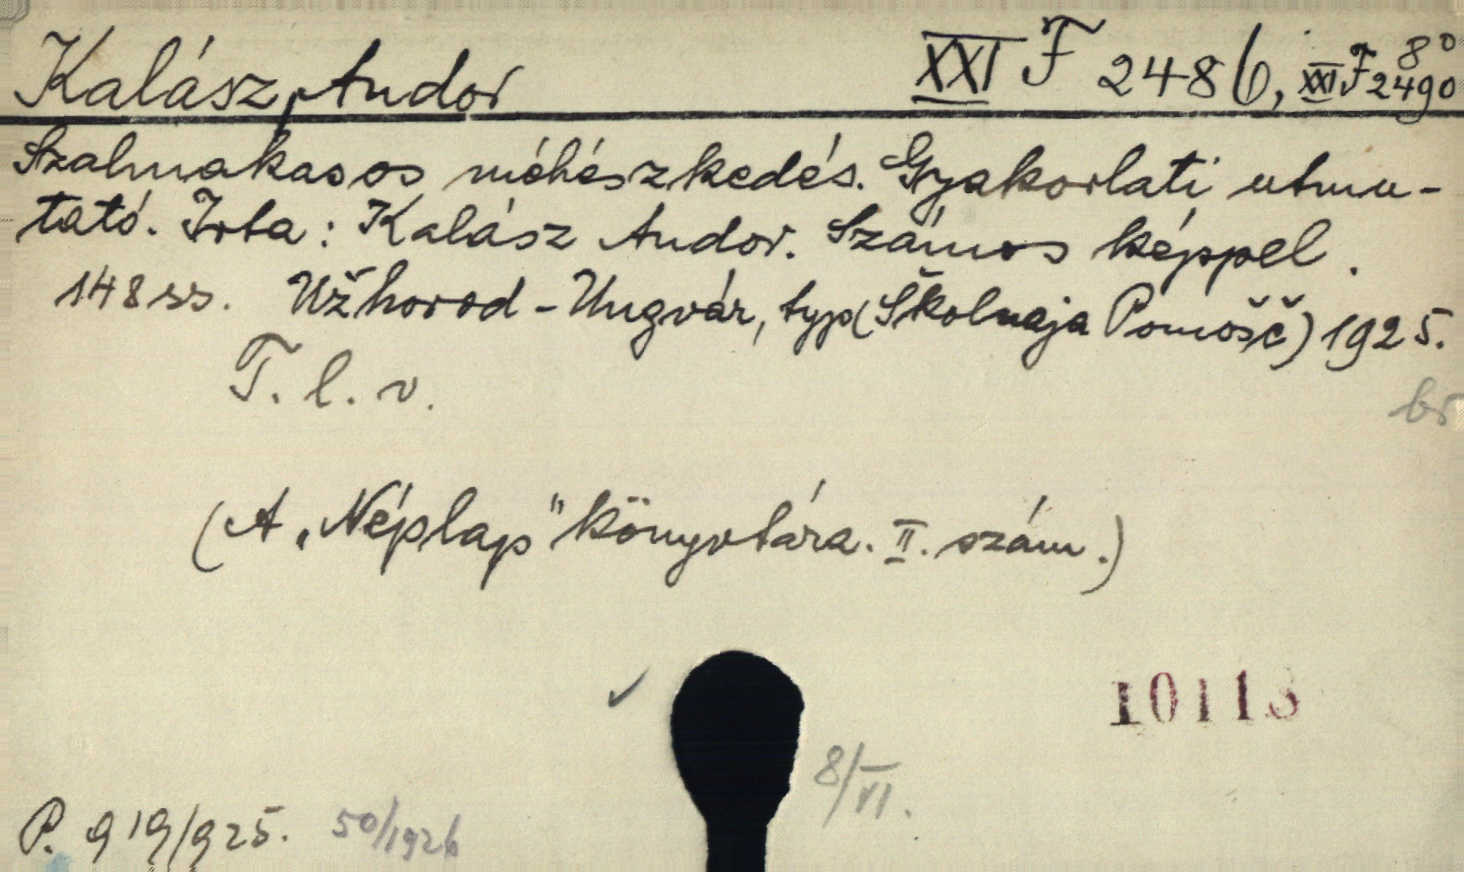 Kalász, Andor XXI F 2486, XXI F 2490 8°
Szalmakasos méhészkedés. Gyakorlati utmu-
tató. Irta: Kalász Andor. Számos képpel.
148 ss. Užhorod - Ungvár, typ (Školnaja Pomošč) 1925.
T. l. v.
br
(A „Néplap" könyvtára. II. szám.)
10113
8/VI.
P. 919/925. 50/1926